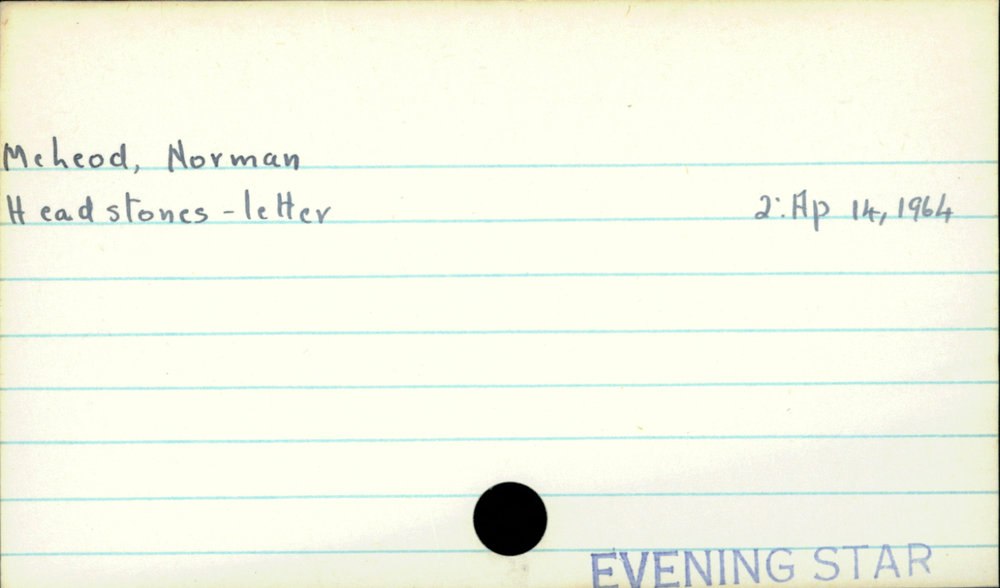 McLeod, Norman
Headstones - letter 2:Ap 14, 1964
EVENING STAR